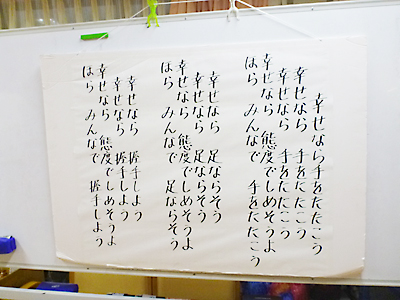 幸せなら手をたたこう
幸せなら 手をたたこう
幸せなら 手をたたこう
幸せなら 態度でしめそうよ
ほら みんなで 手をたたこう
幸せなら 足ならそう
幸せなら 足ならそう
幸せなら 態度でしめそうよ
ほら みんなで 足ならそう
幸せなら 握手しよう
幸せなら 握手しよう
幸せなら 態度でしめそうよ
ほら みんなで 握手しよう